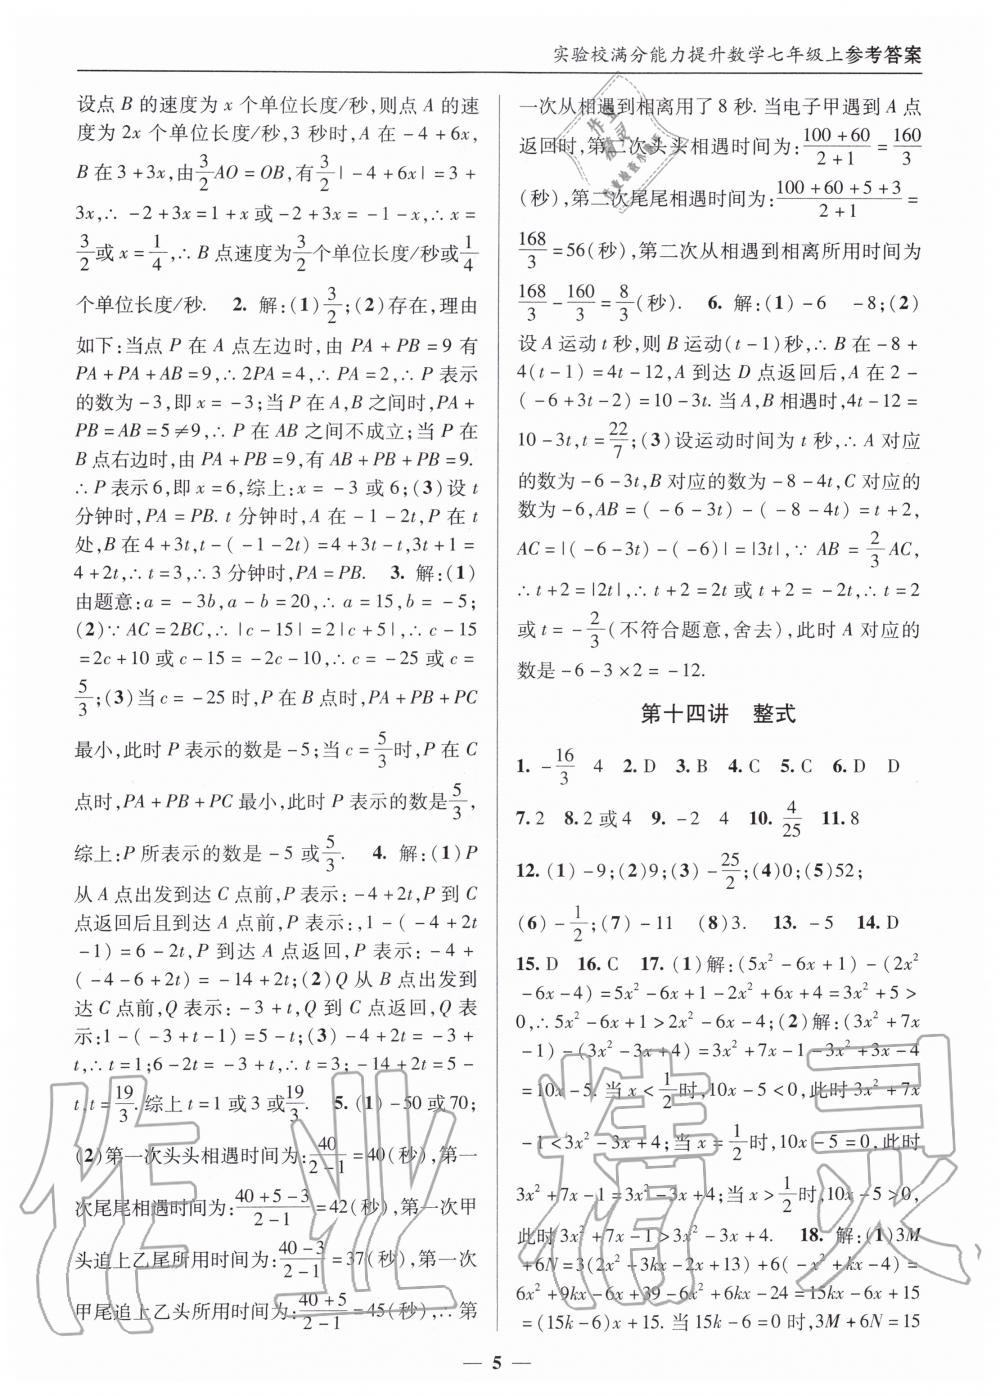 实验校满分能力提升数学七年级上参考答案
设点 B 的速度为 x 个单位长度/秒,则点 A 的速
度为 2x 个单位长度/秒,3 秒时,A 在 -4+6x,
B 在 3+3x,由 3/2 AO=OB,有 3/2 |-4+6x|=3+
3x,∴ -2+3x=1+x 或 -2+3x= -1-x,∴ x=
3/2 或 x= 1/4,∴ B 点速度为 3/2 个单位长度/秒或 1/4
个单位长度/秒. 2. 解:(1) 3/2;(2)存在,理由
如下:当点 P 在 A 点左边时,由 PA+PB=9 有
PA+PA+AB=9,∴ 2PA=4,∴ PA=2,∴ P 表示
的数为 -3,即 x= -3;当 P 在 A,B 之间时,PA+
PB=AB=5≠9,∴ P 在 AB 之间不成立;当 P 在
B 点右边时,由 PA+PB=9,有 AB+PB+PB=9.
∴ P 表示 6,即 x=6,综上:x= -3 或 6;(3)设 t
分钟时,PA=PB. t 分钟时,A 在 -1-2t,P 在 t
处,B 在 4+3t,t-(-1-2t)=4+3t-t,3t+1=
4+2t,∴ t=3,∴ 3 分钟时,PA=PB. 3. 解:(1)
由题意:a= -3b,a-b=20,∴ a=15,b= -5;
(2)∵ AC=2BC,∴ |c-15|=2|c+5|,∴ c-15
=2c+10 或 c-15= -2c-10,∴ c= -25 或 c=
5/3;(3)当 c= -25 时,P 在 B 点时,PA+PB+PC
最小,此时 P 表示的数是 -5;当 c= 5/3 时,P 在 C
点时,PA+PB+PC 最小,此时 P 表示的数是 5/3,
综上:P 所表示的数是 -5 或 5/3. 4. 解:(1)P
从 A 点出发到达 C 点前,P 表示:-4+2t,P 到 C
点返回后且到达 A 点前,P 表示:,1-(-4+2t
-1)=6-2t,P 到达 A 点返回,P 表示:-4+
(-4-6+2t)= -14+2t;(2)Q 从 B 点出发到
达 C 点前,Q 表示:-3+t,Q 到 C 点返回,Q 表
示:1-(-3+t-1)=5-t;(3)-4+2t= -3+
t,∴ t=1;6-2t= -3+t,∴ t=3;-14+2t=5-
t,t= 19/3.综上 t=1 或 3 或 19/3. 5. (1)-50 或 70;
(2)第一次头头相遇时间为:40/(2-1)=40(秒),第一
次尾尾相遇时间为:(40+5-3)/(2-1)=42(秒),第一次甲
头追上乙尾所用时间为:(40-3)/(2-1)=37(秒),第一次
甲尾追上乙头所用时间为:(40+5)/(2-1)=45(秒),∴ 第
一次从相遇到相离用了 8 秒. 当电子甲遇到 A 点
返回时,第二次头头相遇时间为:(100+60)/(2+1)=160/3
(秒),第二次尾尾相遇时间为:(100+60+5+3)/(2+1)=
168/3=56(秒),第二次从相遇到相离所用时间为
168/3-160/3=8/3(秒). 6. 解:(1)-6 -8;(2)
设 A 运动 t 秒,则 B 运动(t-1)秒,∴ B 在 -8+
4(t-1)=4t-12,A 到达 D 点返回后,A 在 2-
(-6+3t-2)=10-3t. 当 A,B 相遇时,4t-12=
10-3t,t= 22/7;(3)设运动时间为 t 秒,∴ A 对应
的数为 -6-3t,B 对应的数为 -8-4t,C 对应的
数为 -6,AB=(-6-3t)-(-8-4t)=t+2,
AC=|(-6-3t)-(-6)|=|3t|,∵ AB= 2/3 AC,
∴ t+2=|2t|,∴ t+2=2t 或 t+2= -2t,∴ t=2
或 t= -2/3(不符合题意,舍去),此时 A 对应的
数是 -6-3×2= -12.
第十四讲 整式
1. -16/3 4 2. D 3. B 4. C 5. C 6. D D
7. 2 8. 2 或 4 9. -2 4 10. 4/25 11. 8
12. (1)-9;(2)9;(3)-25/2;(4)0;(5)52;
(6)-1/2;(7)-11 (8)3. 13. -5 14. D
15. D 16. C 17. (1)解:(5x²-6x+1)-(2x²
-6x-4)=5x²-6x+1-2x²+6x+4=3x²+5>
0,∴ 5x²-6x+1>2x²-6x-4;(2)解:(3x²+7x
-1)-(3x²-3x+4)=3x²+7x-1-3x²+3x-4
=10x-5. 当 x< 1/2 时,10x-5<0,此时 3x²+7x
-1<3x²-3x+4;当 x= 1/2 时,10x-5=0,此时
3x²+7x-1=3x²-3x+4;当 x> 1/2 时,10x-5>0,
此时 3x²+7x-1>3x²-3x+4. 18. 解:(1)3M
+6N=3(2x²+3kx-2x+13)+6(-x²+kx-4)=
6x²+9kx-6x+39-6x²+6kx-24=15kx-6x+15
=(15k-6)x+15. 当 15k-6=0 时,3M+6N=15
— 5 —
作业精灵